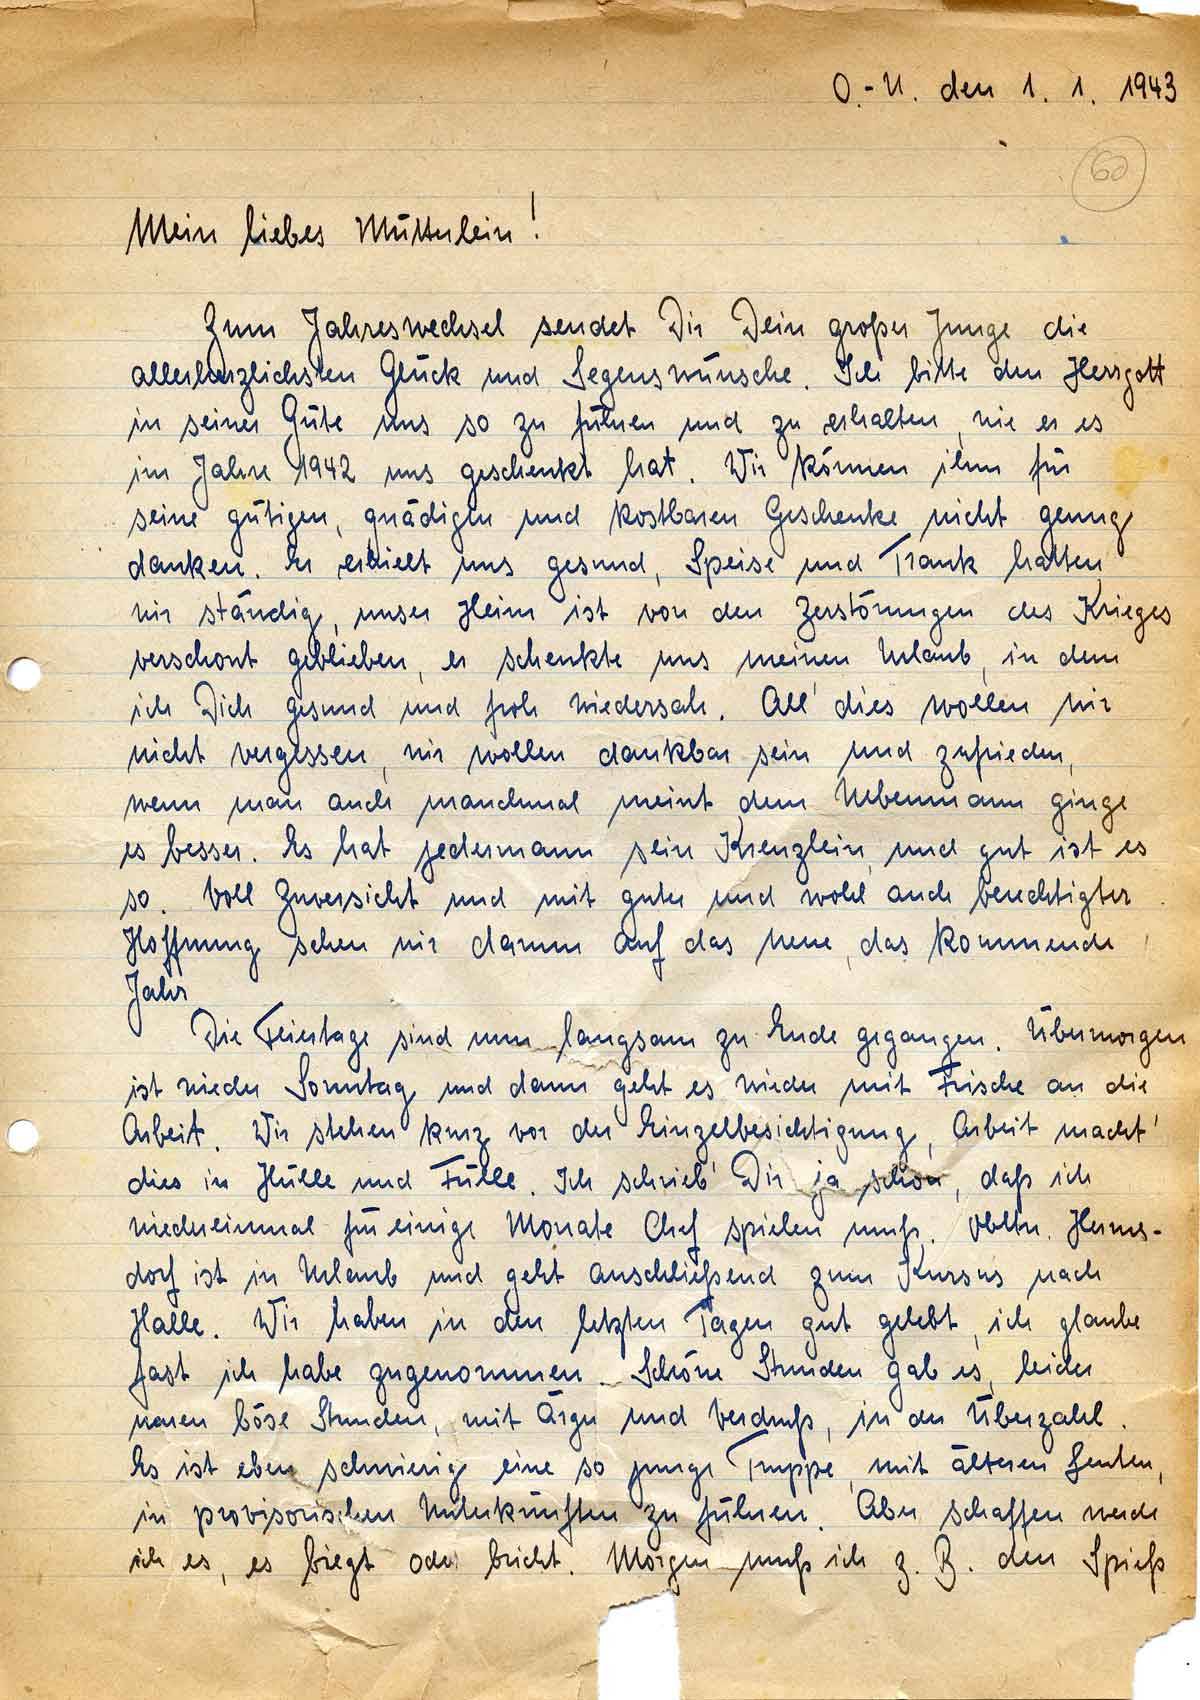 O.-U. den 1. 1. 1943
60
Mein liebes Mütterlein!
Zum Jahreswechsel sendet Dir Dein großer Junge die
allerherzlichsten Glück und Segenswünsche. Ich bitte den Herrgott
in seiner Güte uns so zu führen und zu erhalten, wie er es
im Jahre 1942 uns geschenkt hat. Wir können ihm für
seine gütigen, gnädigen und kostbaren Geschenke nicht genug
danken. Er erhielt uns gesund, Speise und Trank hatten
wir ständig, unser Heim ist von den Zerstörungen des Krieges
verschont geblieben, er schenkte uns meinen Urlaub, in dem
ich Dich gesund und froh wiedersah. All' dies wollen wir
nicht vergessen, wir wollen dankbar sein und zufrieden,
wenn man auch manchmal meint dem Nebenmann ginge
es besser. Es hat jedermann sein Kreuzlein, und gut ist es
so. Voll Zuversicht und mit guter und wohl auch berechtigter
Hoffnung sehen wir darum auf das neue, das kommende
Jahr
Die Feiertage sind nun langsam zu Ende gegangen. Übermorgen
ist wieder Sonntag und dann geht es wieder mit Frische an die
Arbeit. Wir stehen kurz vor der Einzelbesichtigung, Arbeit macht'
dies in Hülle und Fülle. Ich schrieb' Dir ja schon, daß ich
wiedereinmal für einige Monate Chef spielen muß. Obltn. Herms-
dorf ist in Urlaub und geht anschließend zum Kursus nach
Halle. Wir haben in den letzten Tagen gut gelebt, ich glaube
fast ich habe zugenommen. Schöne Stunden gab es, leider
waren böse Stunden, mit Ärger und Verdruß, in der Überzahl.
Es ist eben schwierig eine so junge Truppe, mit älteren Leuten,
in provisorischen Unterkünften zu führen. Aber schaffen werde
ich es, es biegt oder bricht. Morgen muß ich z. B. den Spieß